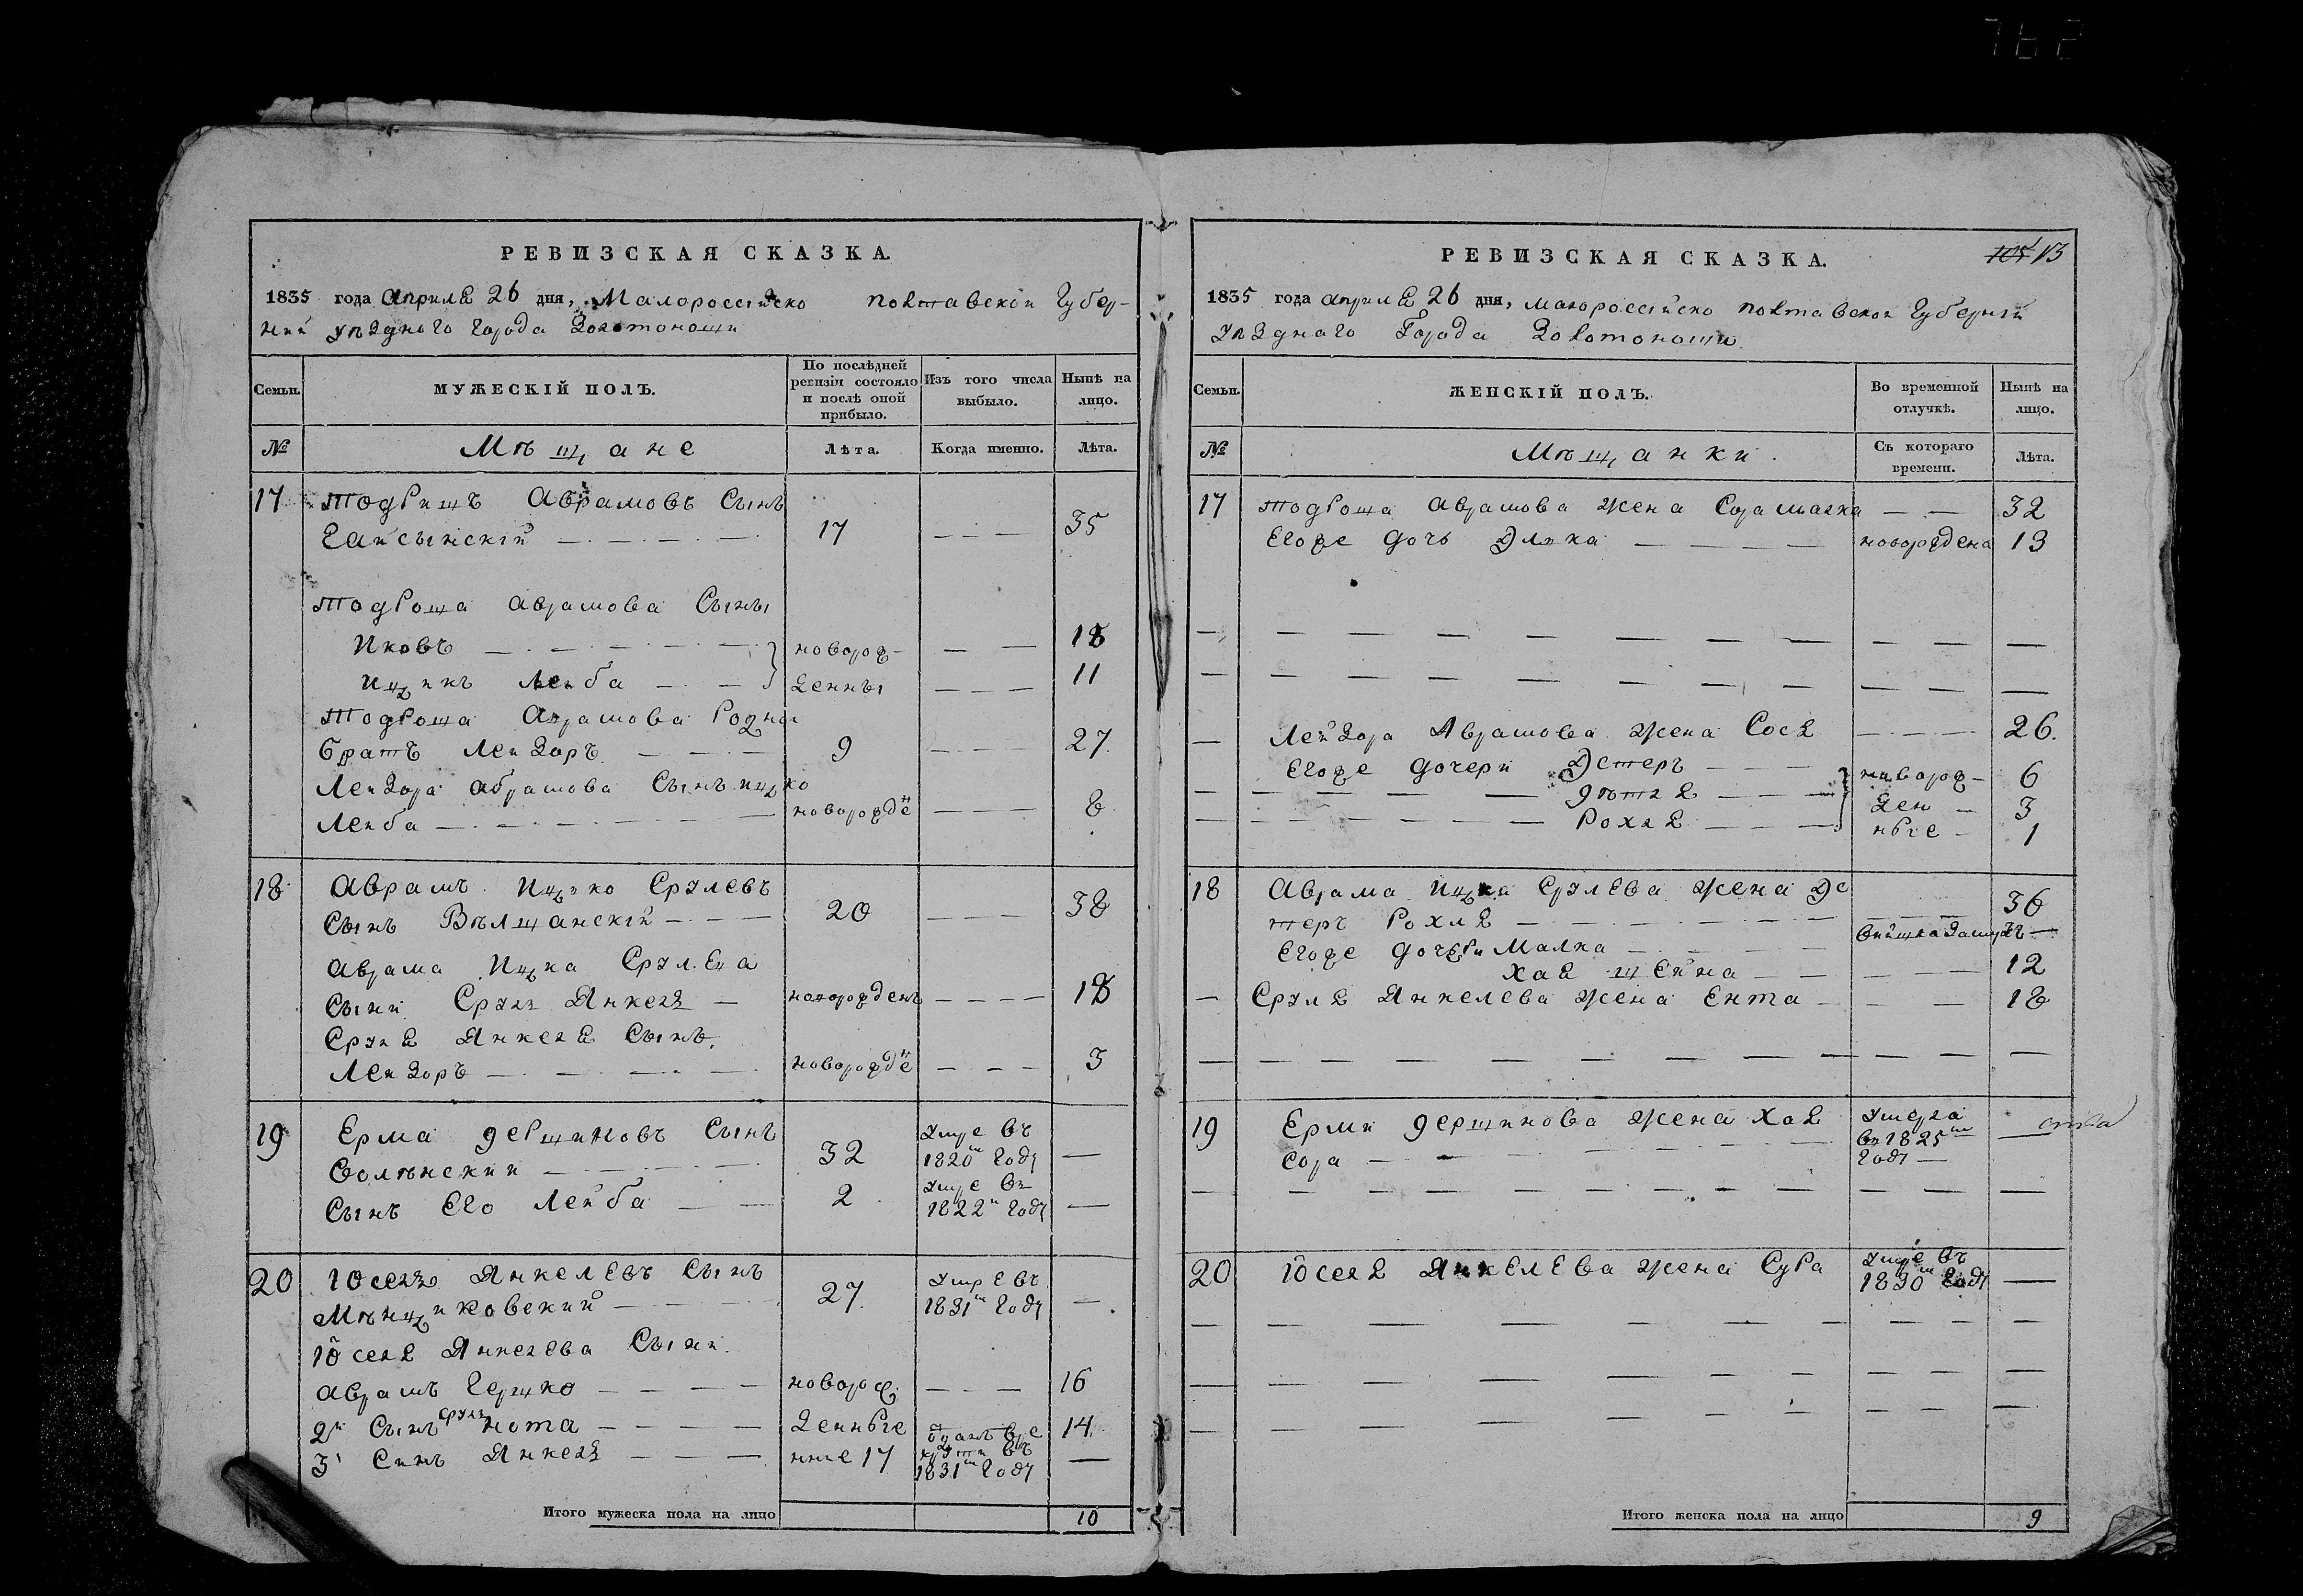 РЕВИЗСКАЯ СКАЗКА.
1835 года апреля 26 дня, Малороссийско Полтавской Губер-
нии уездного города Золотоноши
Семьи.
МУЖЕСКІЙ ПОЛЪ.
По послѣдней ревизіи состояло и послѣ оной прибыло.
Изъ того числа выбыло.
Нынѣ на лицо.
№
Мѣщане
Лѣта.
Когда именно.
Лѣта.
17 Тодришъ Аврамовъ Сынъ
Гайсынскій 17 35
Тодроша аврамова Сыны
Иковъ новорож- 18
Ицикъ Лейба денны 11
Тодроша Аврамова Родной
братъ Лейзоръ 9 27
Лейзора абрамова Сынъ ицко
Лейба новорожден 8
18 Аврамъ Ицко Срулевъ
Сынъ Вѣлшанскій 20 38
Аврама Ицка Срулева
Сынъ Сруль Янкель новорожденъ 18
Сруля Янкеля Сынъ
Лейзоръ новорожден 3
19 Ерма Дершиновъ Сынъ
Волынский 32 Умре въ 1820м Году —
Сынъ Его Лейба 2 Умре въ 1822м Году —
20 Іосель Янкелевъ Сынъ
Мѣнциковский 27 Умре въ 1831м Году —
Іоселя Янкелева Сыни
Аврамъ Гершко новорож 16
2й Сынъ Сруль нота денные 14
3й Сынъ Янкель 17 въ 1831м Году —
Итого мужеска пола на лицо 10
РЕВИЗСКАЯ СКАЗКА.
105 13
1835 года апреля 26 дня, малороссийско Полтавской Губерній
Уездного Города Золотоноши
Семьи.
ЖЕНСКІЙ ПОЛЪ.
Во временной отлучкѣ.
Нынѣ на лицо.
№
Мѣщанки
Съ котораго времени.
Лѣта.
17 Тодроша аврамова жена Сора малка 32
Егоже дочь Элька новорждена 13
Лейзора Аврамова жена Сося 26.
Егоже дочери Эстеръ новорож- 6
ден 3
Рохля ные 1
18 Аврама Ицка Срулева жена Эс
теръ Рохля 36
Егоже дочери Малка вишла замуж —
Хая шейна 12
Сруля Янкелева жена Ента 18
19 Ерми Дершинова жена Хая
Сора Умерла въ 1825м Году —
20 Іоселя Янкелева жена Сура Умре въ 1830м Году —
Итого женска пола на лицо 9